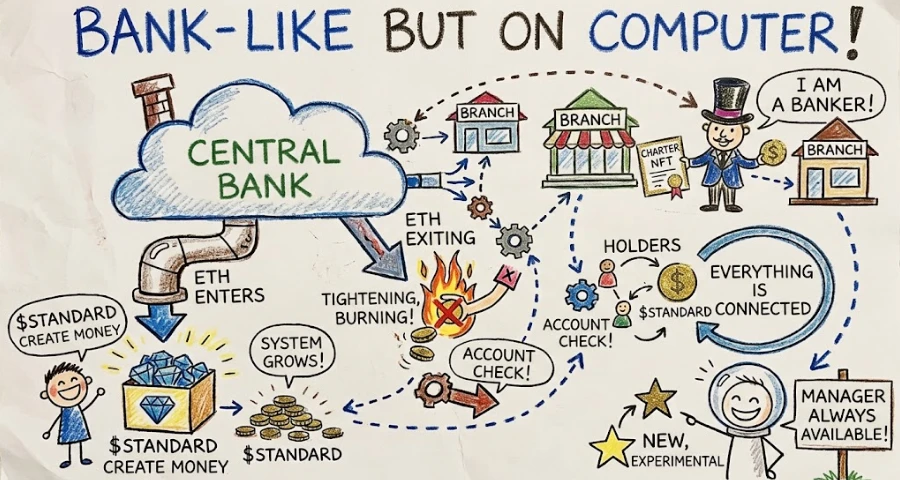 BANK-LIKE BUT ON COMPUTER!
CENTRAL
BANK
BRANCH
BRANCH
CHARTER
NFT
$
I AM
A BANKER!
BRANCH
ETH
ENTERS
ETH
EXITING
TIGHTENING,
BURNING!
HOLDERS
$
$STANDARD
ACCOUNT
CHECK!
EVERYTHING
IS
CONNECTED
$STANDARD
CREATE MONEY
SYSTEM
GROWS!
ACCOUNT
CHECK!
$STANDARD
CREATE MONEY
$STANDARD
NEW,
EXPERIMENTAL
MANAGER
ALWAYS
AVAILABLE!